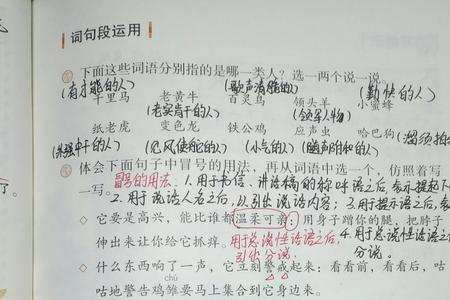 词句段运用
下面这些词语分别指的是哪一类人？选一两个说一说。
(有才能的人) (歌声清脆的人) (勤快的人)
千里马 老黄牛 百灵鸟 领头羊 小蜜蜂
(老实肯干的人) (领军人物)
纸老虎 变色龙 铁公鸡 应声虫 哈巴狗
(外强中干的人) (见风使舵的人) (小气的人) (随声附和的人) (溜须拍
体会下面句子中冒号的用法，再从词语中选一个，仿照着写
一写。 冒号的用法：1.用于书信、讲话稿的称呼语之后，表示提起下
2.用于说话人名之后，以引出说话内容；3.用于提示语之后，
◇ 它要是高兴，能比谁都温柔可亲：用身子蹭你的腿，把脖子
伸出来让你给它抓痒。 用于总说性话语之后，引出分说。 4.用于总说性话语之 分说。
◇ 什么东西响了一声，它立刻警戒起来：看看前，看看后，咕
chú
咕地警告鸡雏要马上集合到它身边来。
了。